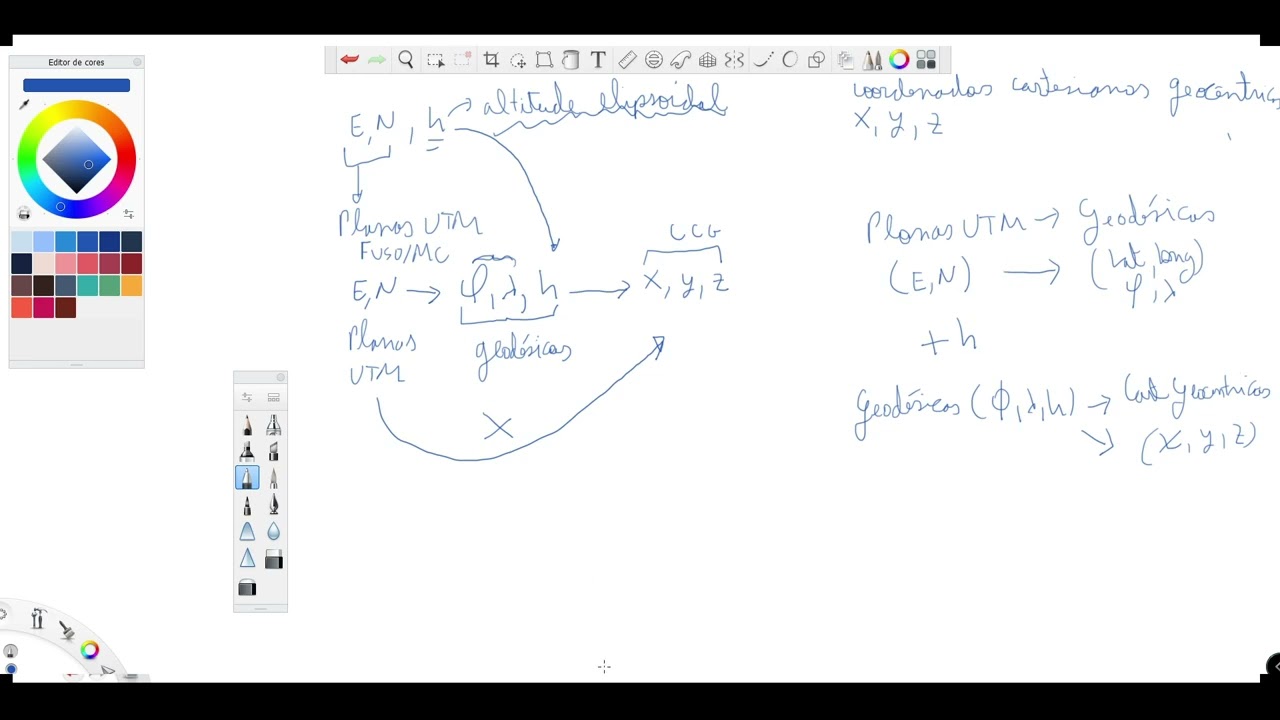 Editor de cores
E, N, h → altitude elipsoidal
Planas UTM
FUSO/MC
E, N → φ, λ, h → X, Y, Z
CCG
Planas
UTM
geodésicas
X
coordenadas cartesianas geocêntricas
X, Y, Z
Planas UTM → Geodésicas
(E, N) → (Lat, Long)
φ, λ
+ h
Geodésicas (φ, λ, h) → Cart Geocêntricas
(X, Y, Z)